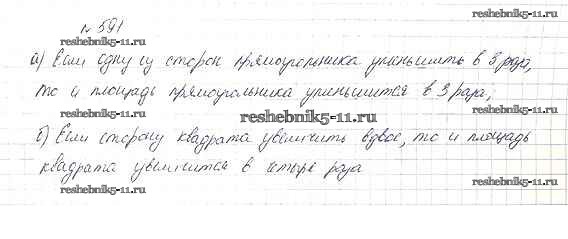 № 591
reshebnik5-11.ru
reshebnik5-11.ru
а) Если одну из сторон прямоугольника уменьшить в 3 раза,
то и площадь прямоугольника уменьшится в 3 раза;
reshebnik5-11.ru
б) Если сторону квадрата увеличить вдвое, то и площадь
квадрата увеличится в четыре раза
reshebnik5-11.ru
reshebnik5-11.ru